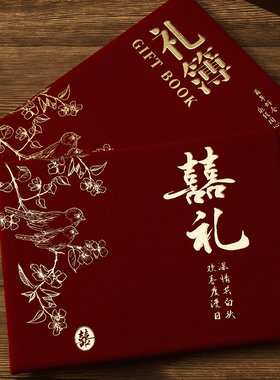 礼簿
GIFT BOOK
囍礼
深情共白头
欢喜度漫日
囍